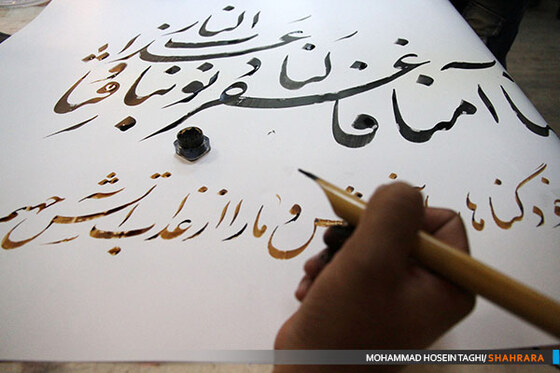 آمنا فاغفر لنا ذنوبنا وقنا عذاب النار
و ما را از عذاب آتش
MOHAMMAD HOSEIN TAGHI/ SHAHRARA